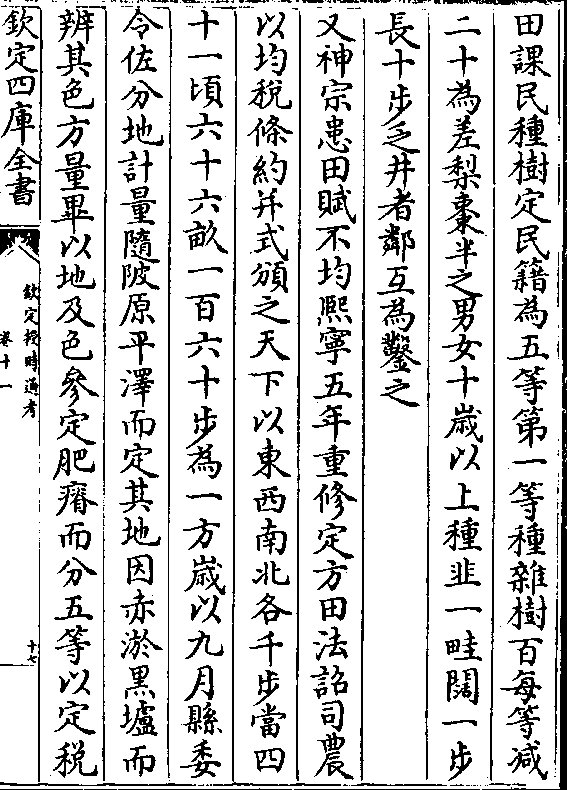 田課民種樹定民籍為五等第一等種雜樹百每等减
二十為差梨棗半之男女十歲以上種韭一畦闊一步
長十步乏井者鄰互為鑿之
又神宗患田賦不均熙寧五年重修定方田法詔司農
以均稅條約并式頒之天下以東西南北各千步當四
十一頃六十六畝一百六十步為一方歲以九月縣委
令佐分地計量隨陂原平澤而定其地因赤淤黑壚而
辨其色方量畢以地及色參定肥瘠而分五等以定稅
欽定四庫全書
欽定授時通考
卷十一
十七